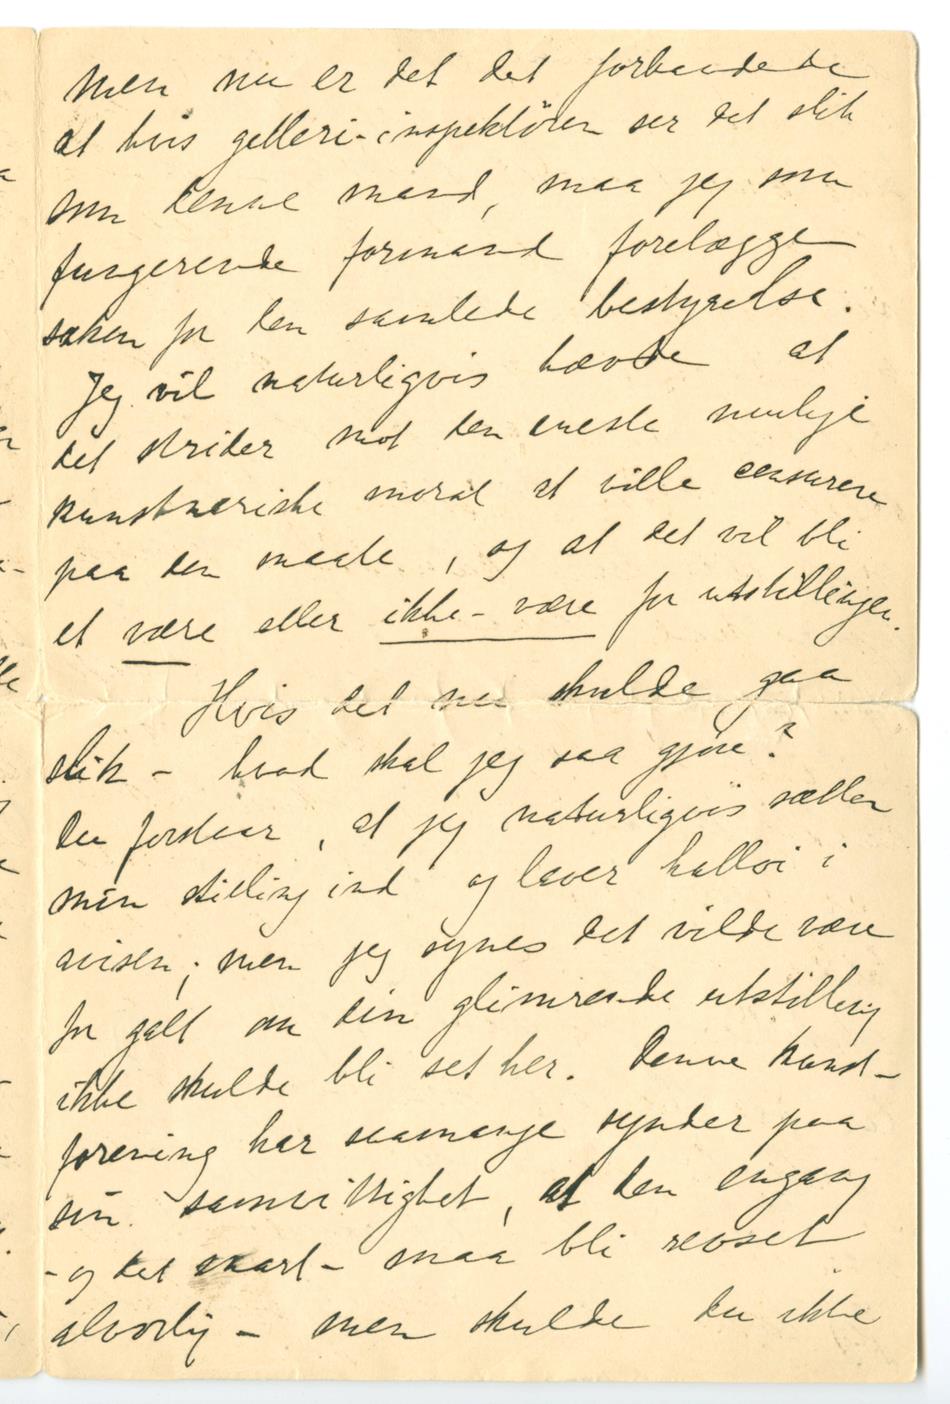 Men nu er det det forbandede
at hvis galleri-inspektören ser det slik
som denne mand, maa jeg som
fungerende formand forelægge
saken for den samlede bestyrelse.
Jeg vil naturligvis hævde at
det strider mot den eneste mulige
kunstneriske moral at ville censurere
paa den maate, og at det vil bli
et være eller ikke-være for utstillingen.
Hvis det nu skulde gaa
slik - hvad skal jeg saa gjøre?
Du forstaar, at jeg naturligvis sætter
min stilling ind og laver halloi i
avisen; men jeg synes det vilde være
for galt om din glimrende utstilling
ikke skulde bli set her. Denne kunst-
forening har saamange synder paa
sin samvittighet, at den engang
- og det snart - maa bli revset
alvorlig - men skulde du ikke